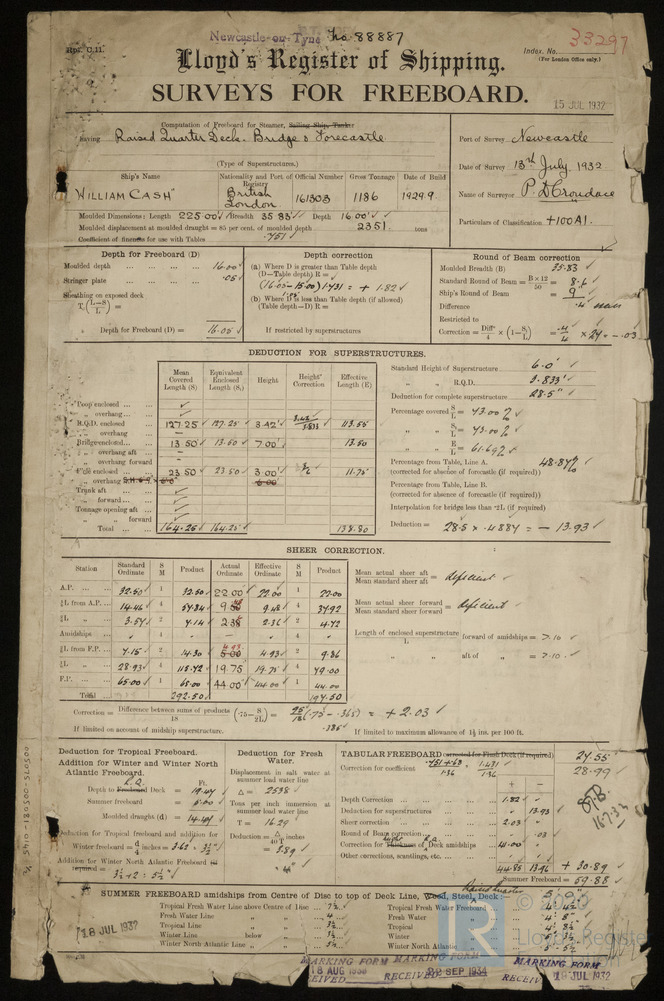 Newcastle-on-Tyne No. 88887
Rpt. C.11.
Index. No. 33297
(For London Office only.)
Lloyd's Register of Shipping.
SURVEYS FOR FREEBOARD.
15 JUL 1932
Computation of Freeboard for Steamer, Sailing Ship, Tanker
having Raised Quarter Deck, Bridge & Forecastle
(Type of Superstructures.)
Port of Survey Newcastle
Date of Survey 13th July, 1932
Name of Surveyor P. D. Crondace
Particulars of Classification +100A1.
Ship's Name Nationality and Port of Registry Official Number Gross Tonnage Date of Build
"WILLIAM CASH" British London 161303 1186 1929.9
Moulded Dimensions: Length 225.00 Breadth 35.83 Depth 16.00
Moulded displacement at moulded draught = 85 per cent. of moulded depth 2351 tons
Coefficient of fineness for use with Tables .751
Depth for Freeboard (D)
Moulded depth 16.00
Stringer plate .05
Sheathing on exposed deck
T (L-S / L) =
Depth for Freeboard (D) = 16.05
Depth correction
(a) Where D is greater than Table depth
(D-Table depth) R =
(16.05-15.00) 1.731 = + 1.82
(b) Where D is less than Table depth (if allowed)
(Table depth-D) R =
If restricted by superstructures
Round of Beam correction
Moulded Breadth (B) 35.83
Standard Round of Beam = B×12 / 50 = 8.6
Ship's Round of Beam = 9"
Difference .4
Restricted to
Correction = Diff / 4 × (1 - S/L) = .4/4 × .27 = -.03
DEDUCTION FOR SUPERSTRUCTURES.
Mean Covered Length (S) Equivalent Enclosed Length (S₁) Height Height Correction Effective Length (E)
Poop enclosed
" overhang
R.Q.D. enclosed 127.25 127.25 3.42 3.42/3.833 113.55
" overhang
Bridge enclosed 13.50 13.50 7.00 13.50
" overhang aft
" overhang forward
F'cle enclosed 23.50 23.50 3.00 3/6 11.75
" overhang
Trunk aft
" forward
Tonnage opening aft
" " forward
Total 164.25 164.25 138.80
Standard Height of Superstructure 6.0'
" " R.Q.D. 3.833'
Deduction for complete superstructure 28.5"
Percentage covered S/L = 73.00%
" " S₁/L = 73.00%
" " E/L = 61.69%
Percentage from Table, Line A. 48.87%
(corrected for absence of forecastle (if required))
Percentage from Table, Line B.
(corrected for absence of forecastle (if required))
Interpolation for bridge less than ·2L (if required)
Deduction = 28.5 × .4887 = - 13.93
SHEER CORRECTION.
Station Standard Ordinate S M Product Actual Ordinate Effective Ordinate S M Product
A.P. 32.50 1 32.50 22.00 22.00 1 22.00
⅙L from A.P. 14.46 4 57.84 9.48 4 37.92
⅓L 3.57 2 7.14 2.36 2 4.72
Amidships 4 4
⅓L from F.P. 7.15 2 14.30 4.93 4.93 2 9.86
⅙L 28.93 4 115.72 19.75 19.75 4 79.00
F.P. 65.00 1 65.00 44.00 44.00 1 44.00
Total 292.50 197.50
Mean actual sheer aft / Mean standard sheer aft = deficient
Mean actual sheer forward / Mean standard sheer forward = deficient
Length of enclosed superstructure / L forward of amidships = >.10
" " aft of " = >.10
Correction = Difference between sums of products / 18 (·75 - S/2L) = 95/18 (.75 - .365) = + 2.03
.385
If limited on account of midship superstructure.
If limited to maximum allowance of 1½ ins. per 100 ft.
Deduction for Tropical Freeboard.
Addition for Winter and Winter North Atlantic Freeboard.
R.Q. Ft.
Depth to Freeboard Deck = 19.47
Summer freeboard = 5.00
Moulded draught (d) = 14.47
Deduction for Tropical freeboard and addition for
Winter freeboard = d/4 inches = 3.62 = 3½"
Addition for Winter North Atlantic Freeboard (if required) =
3½ + 2 = 5½"
Deduction for Fresh Water.
Displacement in salt water at summer load water line
Δ = 2538
Tons per inch immersion at summer load water line
T = 16.29
Deduction = Δ / 40T inches
= 3.89
= 4"
TABULAR FREEBOARD corrected for Flush Deck (if required) 27.55
Correction for coefficient .751+.68 / 1.36 = 1.431 / 1.36 28.99
+ -
Depth Correction 1.82
Deduction for superstructures 13.93
Sheer correction 2.03
Round of Beam correction .03
Correction for Thickness of Deck amidships 41.00
Other corrections, scantlings, etc.
44.85 13.96 + 30.89
Summer Freeboard = 59.88
16.7.32
SUMMER FREEBOARD amidships from Centre of Disc to top of Deck Line, Wood, Steel, Deck: Raised Quarter 5'-0"
Tropical Fresh Water Line above Centre of Disc 7½
Fresh Water Line " " 4
Tropical Line " " 3½
Winter Line below " " 3½
Winter North Atlantic Line " " 5½
Tropical Fresh Water Freeboard 4'-4½"
Fresh Water " 4'-8"
Tropical " 4'-8½"
Winter " 5'-3½"
Winter North Atlantic " 5'-5½"
18 JUL 1932
MARKING FORM RECEIVED 18 AUG 1933
MARKING FORM RECEIVED 22 SEP 1934
MARKING FORM RECEIVED 19 JUL 1932
© 2020
LR
Lloyd's Register